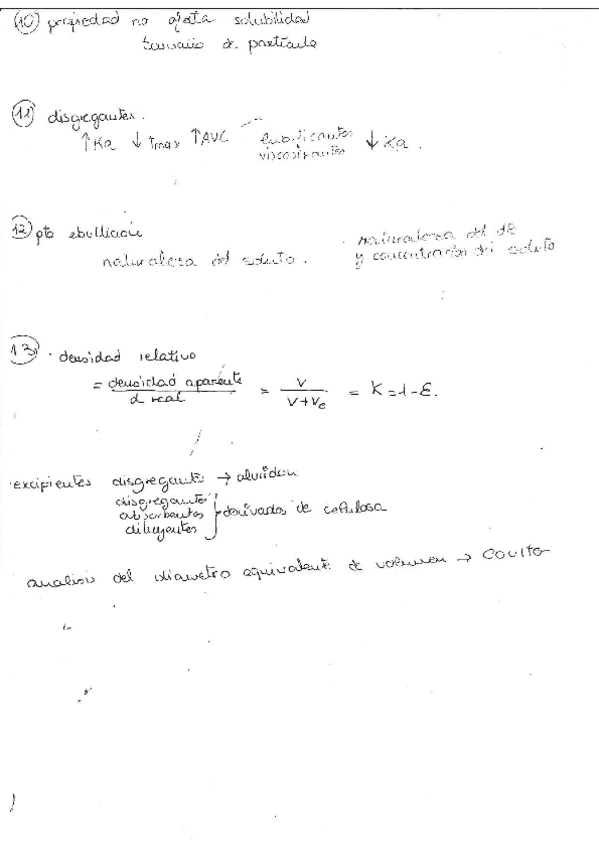 10) propiedad no afecta solubilidad
tamaño de partícula
11) disgregantes.
↑Ka ↓ Tmax ↑AUC lubrificantes ↓ Ka.
viscosizantes
12) pto ebullición
naturaleza del soluto. · naturaleza del dte
y concentración del soluto
13) · densidad relativo
= densidad aparente / d real = V / V+Ve = K = 1 - ε.
· excipientes disgregante → almidón
disgregantes
absorbentes } derivados de celulosa
diluyentes
analisis del diametro equivalente de volumen → Coulter